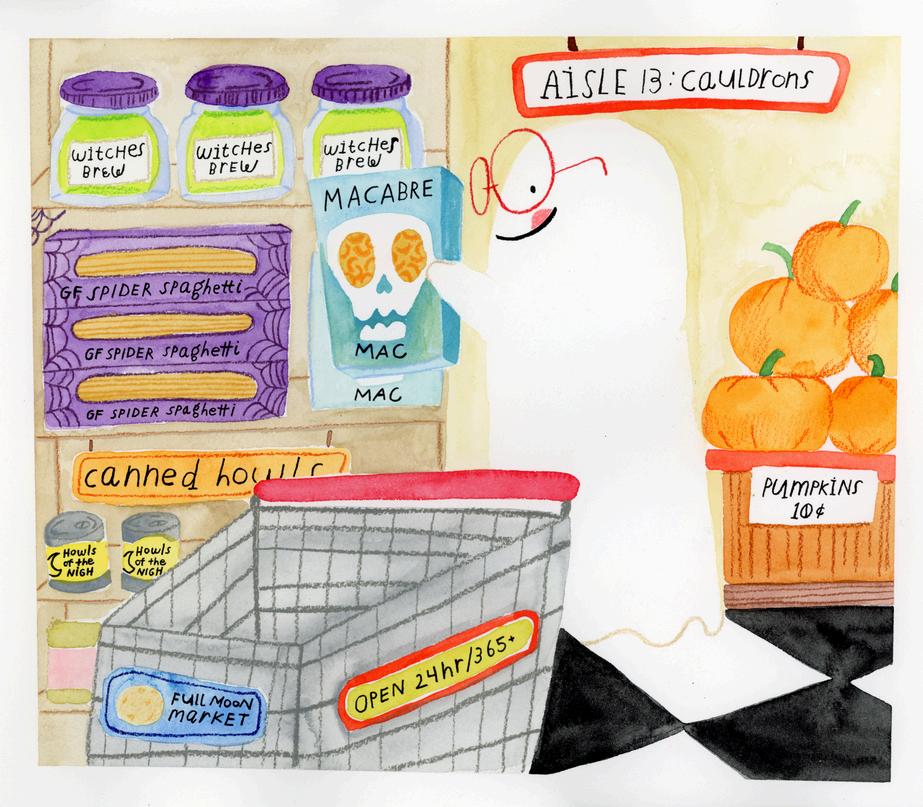 AISLE 13: CAULDRONS
WITCHES
BREW
WITCHES
BREW
WITCHES
BREW
MACABRE
MAC
MAC
GF SPIDER SPAGHETTI
GF SPIDER SPAGHETTI
GF SPIDER SPAGHETTI
canned howls
Howls
of the
NIGH
Howls
of the
NIGH
PUMPKINS
10¢
OPEN 24hr/365+
FULL MOON
MARKET